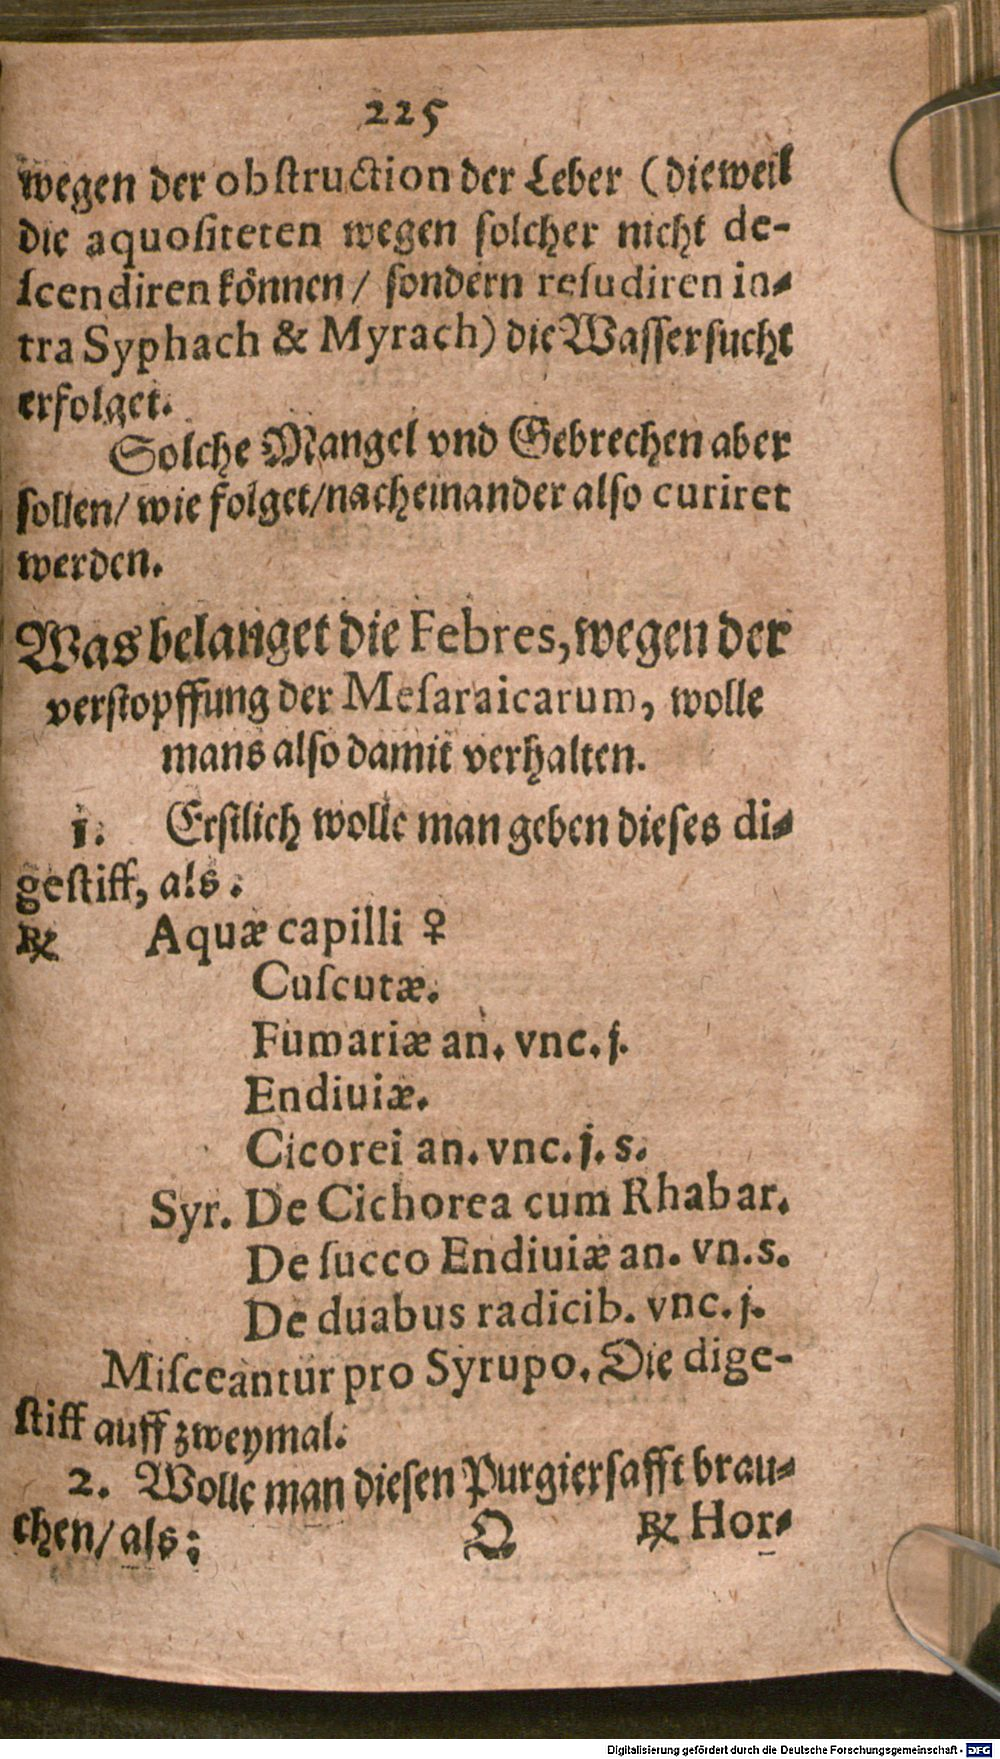 225
wegen der obſtruction der Leber (dieweil
die aquoſiteten wegen ſolcher nicht de-
ſcendiren können/ ſondern reſudiren in-
tra Syphach & Myrach) die Waſſerſucht
erfolget.
Solche Mangel vnd Gebrechen aber
ſollen/ wie folget/nacheinander alſo curiret
werden.
Was belanget die Febres, wegen der
verſtopffung der Meſaraicarum, wolle
mans alſo damit verhalten.
1. Erſtlich wolle man geben dieſes di-
geſtiff, als:
℞ Aquæ capilli ♀
Cuſcutæ.
Fumariæ an. vnc. j.
Endiuiæ.
Cicorei an. vnc. j. s.
Syr. De Cichorea cum Rhabar.
De ſucco Endiuiæ an. vn. s.
De duabus radicib. vnc. j.
Miſceantur pro Syrupo. Die dige-
ſtiff auff zweymal.
2. Wolle man dieſen Purgierſafft brau-
chen/ als: Q ℞ Hor-
Digitalisierung gefördert durch die Deutsche Forschungsgemeinschaft - DFG